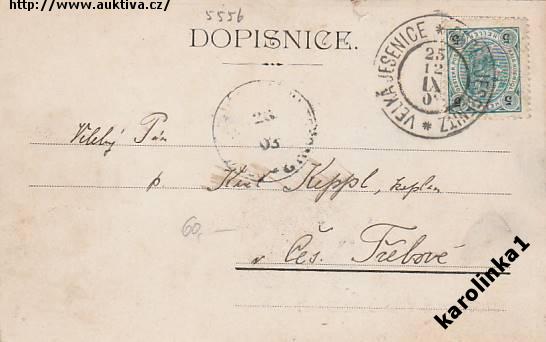 http://www.auktiva.cz/
5556
DOPISNICE.
VELKÁ JESENICE
25
12
IX
03
5 5
25
03
Vážený Pán
p Karl Keppl, kaplan
60,—
v Čes. Třebové
karolinka1